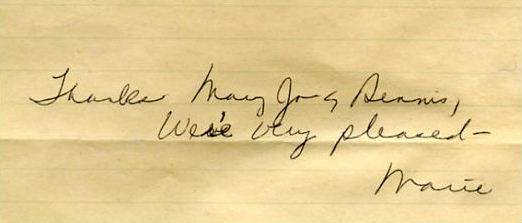 Thanks Mary Jo & Dennis,
We're very pleased –
Marie